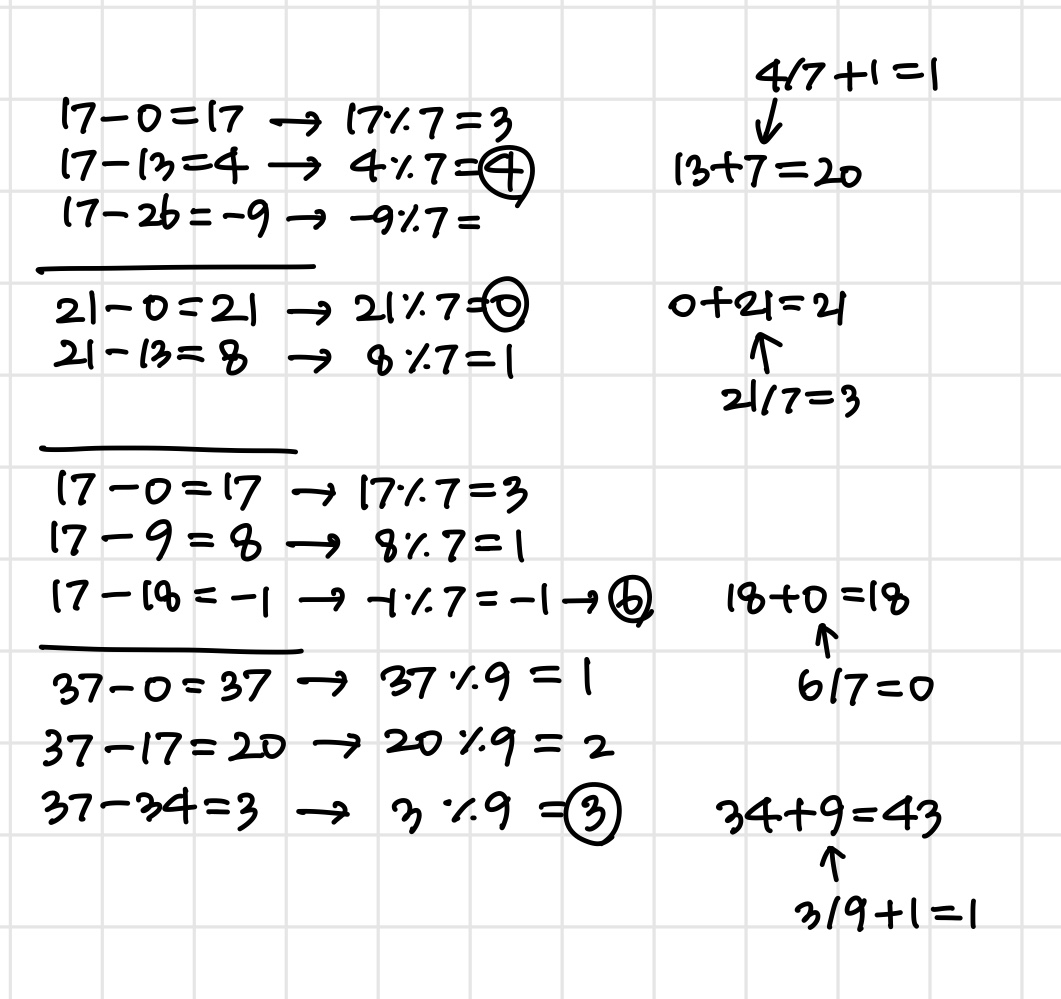 4/7+1=1
17-0=17 → 17%7=3
17-13=4 → 4%7=4
13+7=20
17-26=-9 → -9%7=
21-0=21 → 21%7=0
0+21=21
21-13=8 → 8%7=1
21/7=3
17-0=17 → 17%7=3
17-9=8 → 8%7=1
17-18=-1 → -1%7=-1→6
18+0=18
37-0=37 → 37%9=1
6/7=0
37-17=20 → 20%9=2
37-34=3 → 3%9=3
34+9=43
3/9+1=1